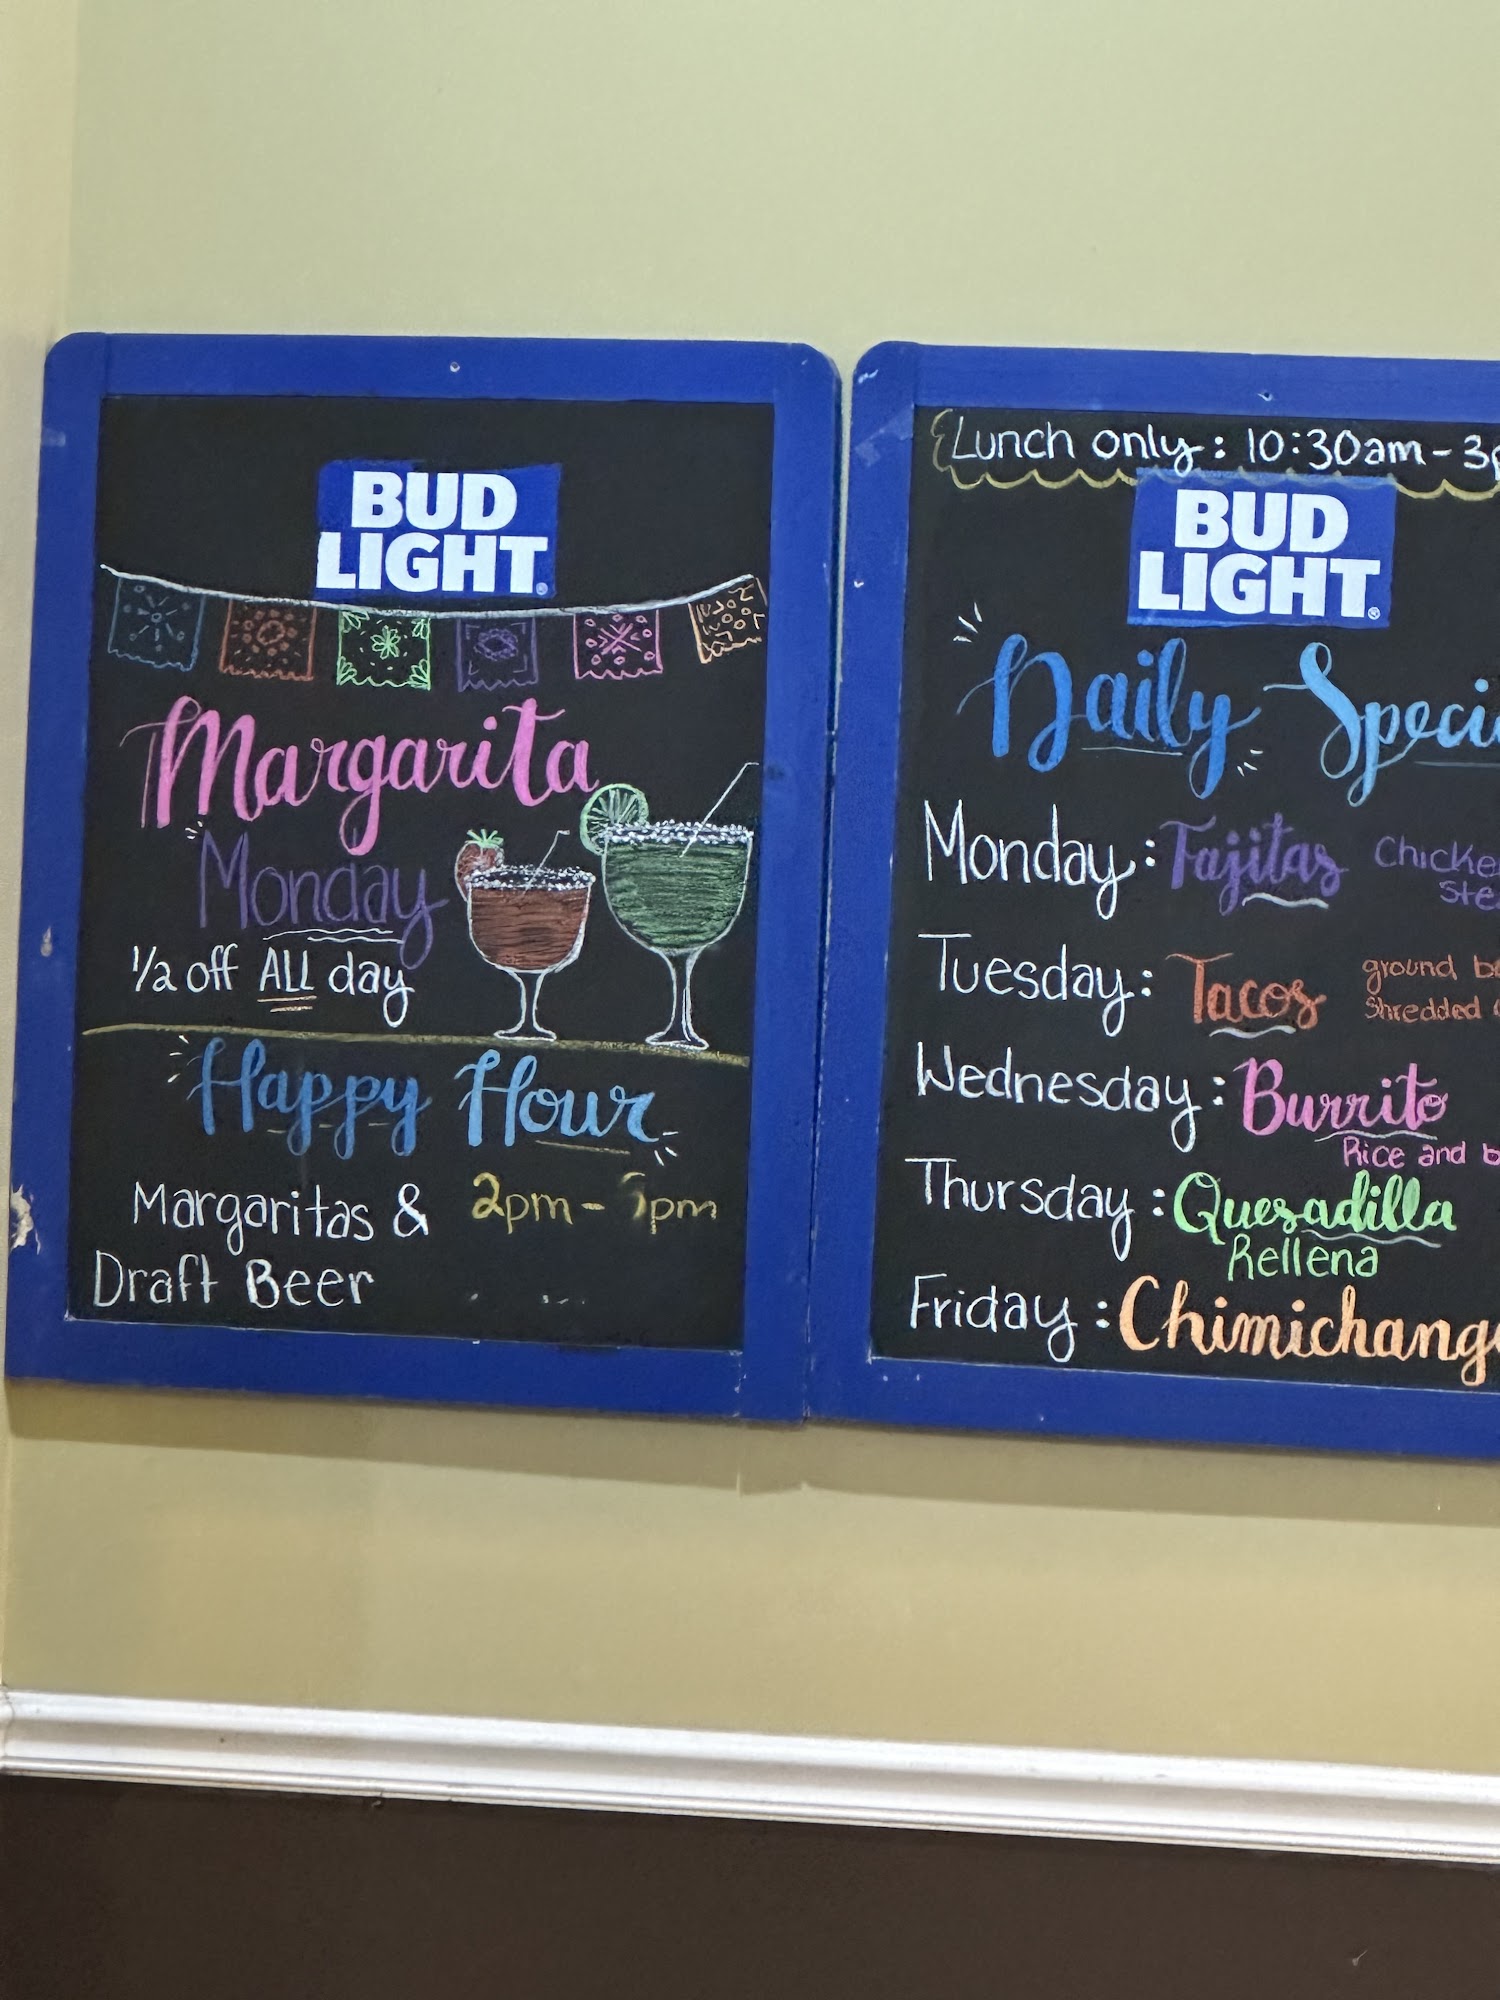 BUD
LIGHT
Margarita
Monday
1/2 off ALL day
Happy Hour
Margaritas & 2pm -
Draft Beer
Lunch only: 10:30am - 3p
BUD
LIGHT
Daily Speci
Monday: Fajitas Chicke
Ste
Tuesday: Tacos ground b
Shredded
Wednesday: Burrito
Rice and b
Thursday: Quesadilla
Rellena
Friday: Chimichang